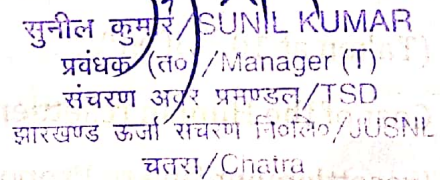 सुनील कुमार/SUNIL KUMAR
प्रवंधक (त०)/Manager (T)
संचरण अवर प्रमण्डल/TSD
झारखण्ड ऊर्जा संचरण नि०लि०/JUSNL
चतरा/Chatra